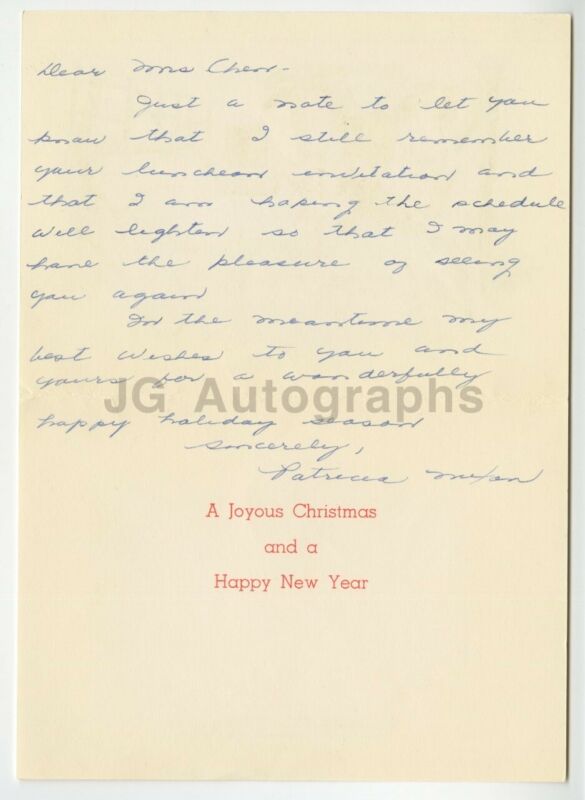 Dear Mrs Chew-
Just a note to let you
know that I still remember
your luncheon invitation and
that I am hoping the schedule
will lighten so that I may
have the pleasure of seeing
you again
In the meantime my
best wishes to you and
yours for a wonderfully
JG Autographs
happy holiday season
Sincerely,
Patricia Nixon
A Joyous Christmas
and a
Happy New Year